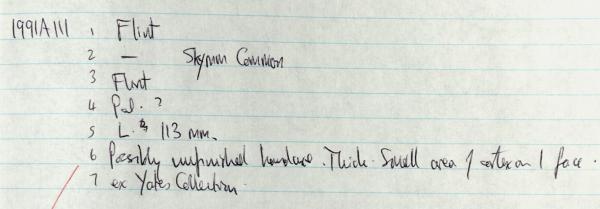 1991A111 1 Flint
2 — Skymm Common
3 Flint
4 Pal. ?
5 L. 113 mm.
6 Possibly unfinished handaxe. Thick. Small area of cortex on 1 face.
7 ex Yates Collection.